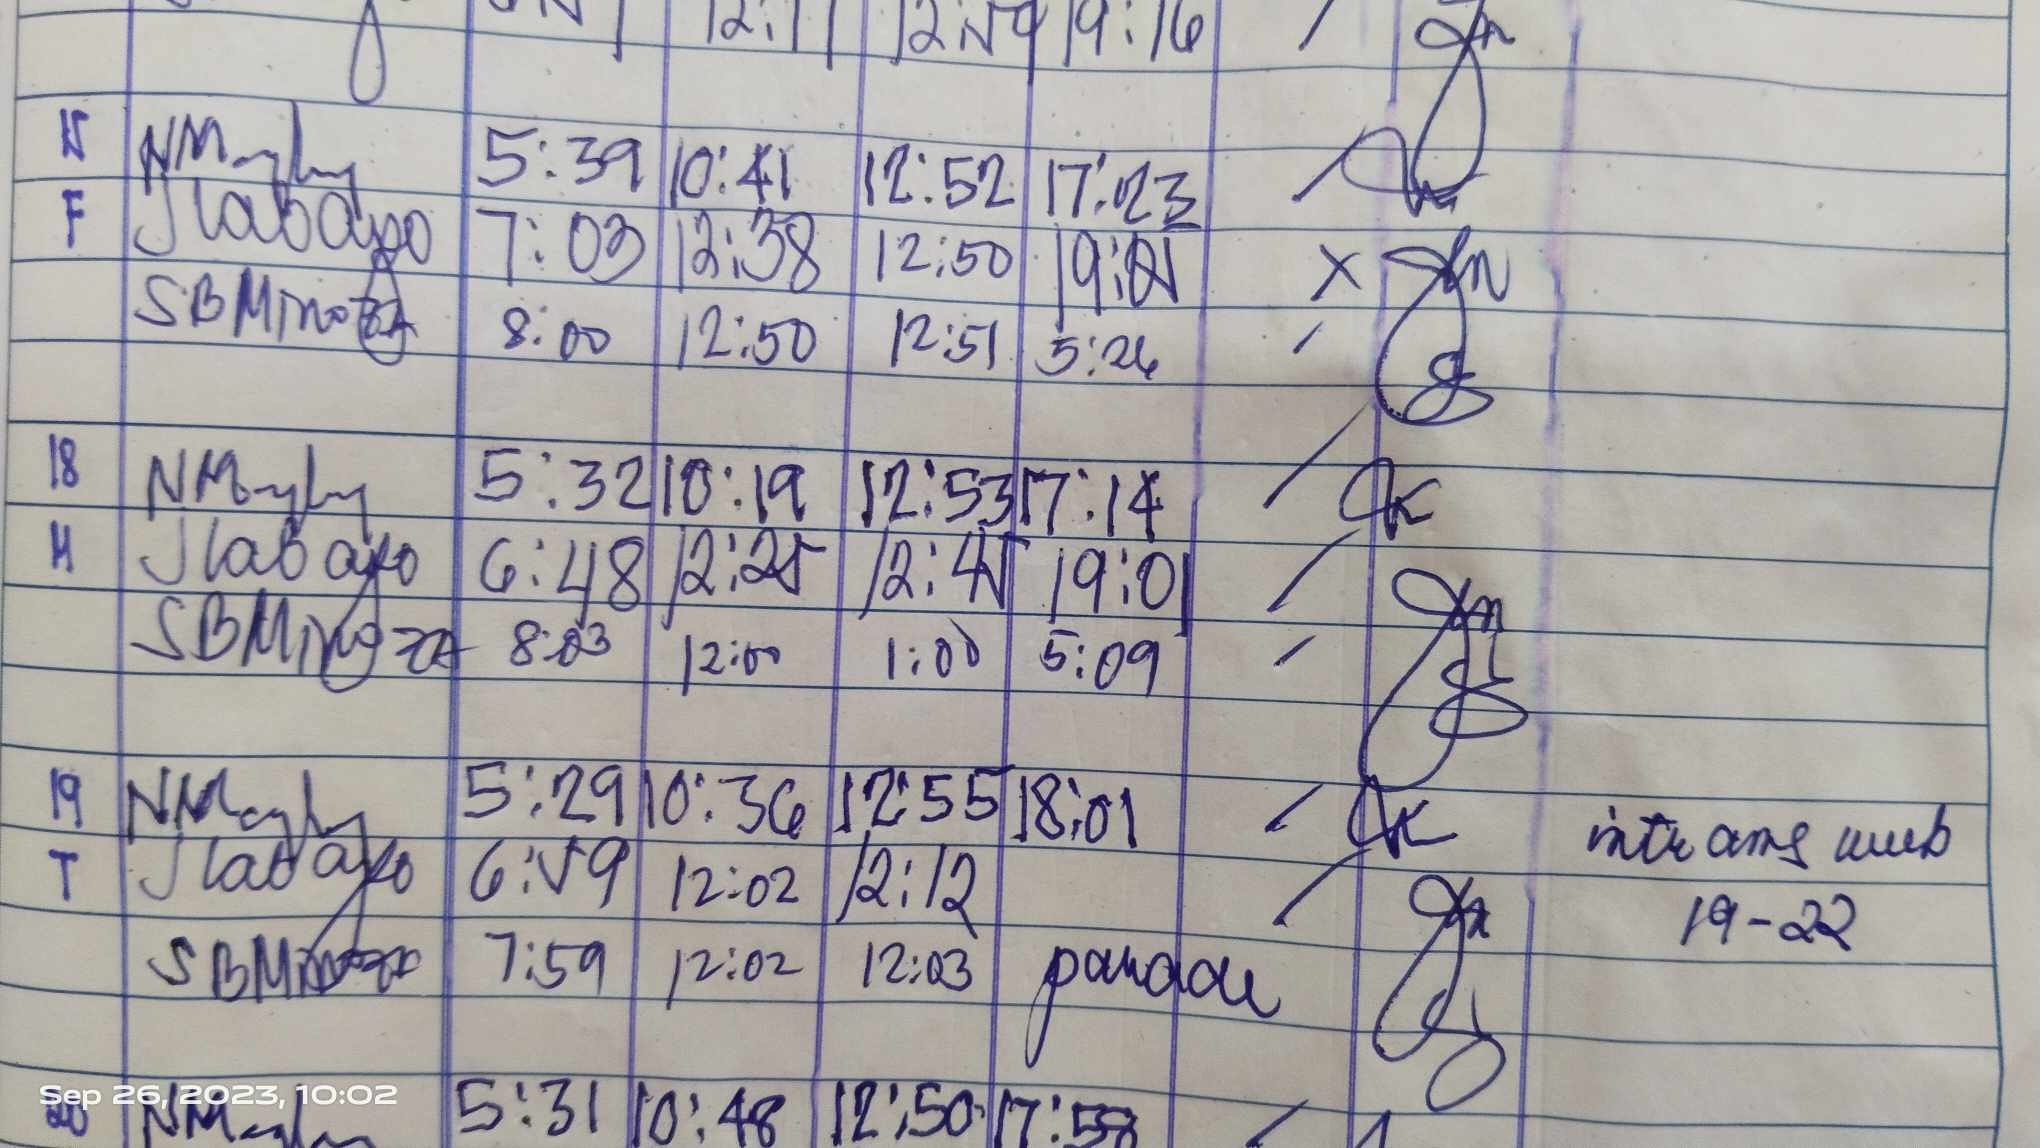 12:11 19:16
15 NMagby 5:39 10:41 12:52 17:23 /
F Jlabayo 7:03 12:38 12:50 19:01 x
SBMinoza 8:00 12:50 12:51 5:26 /
18 NMagby 5:32 10:19 12:53 17:14 /
M Jlabayo 6:48 12:25 12:45 19:01 /
SBMinoza 8:03 12:00 1:00 5:09 /
19 NMagby 5:29 10:36 12:55 18:01 / intrams week
T Jlabayo 6:59 12:02 12:12 / 19-22
SBMinoza 7:59 12:02 12:03 parade
20 NMagby 5:31 10:48 12:50 17:58 /
Sep 26, 2023, 10:02